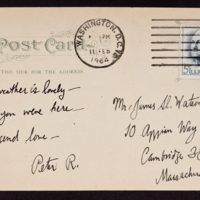 Post Card
THIS SIDE FOR THE ADDRESS
WASHINGTON, D.C.
PM
11 FEB
1964
5¢
weather is lovely -
you were here -
send love -
Peter R.
Mr. James W.
10 Appian Way
Cambridge
Massachu